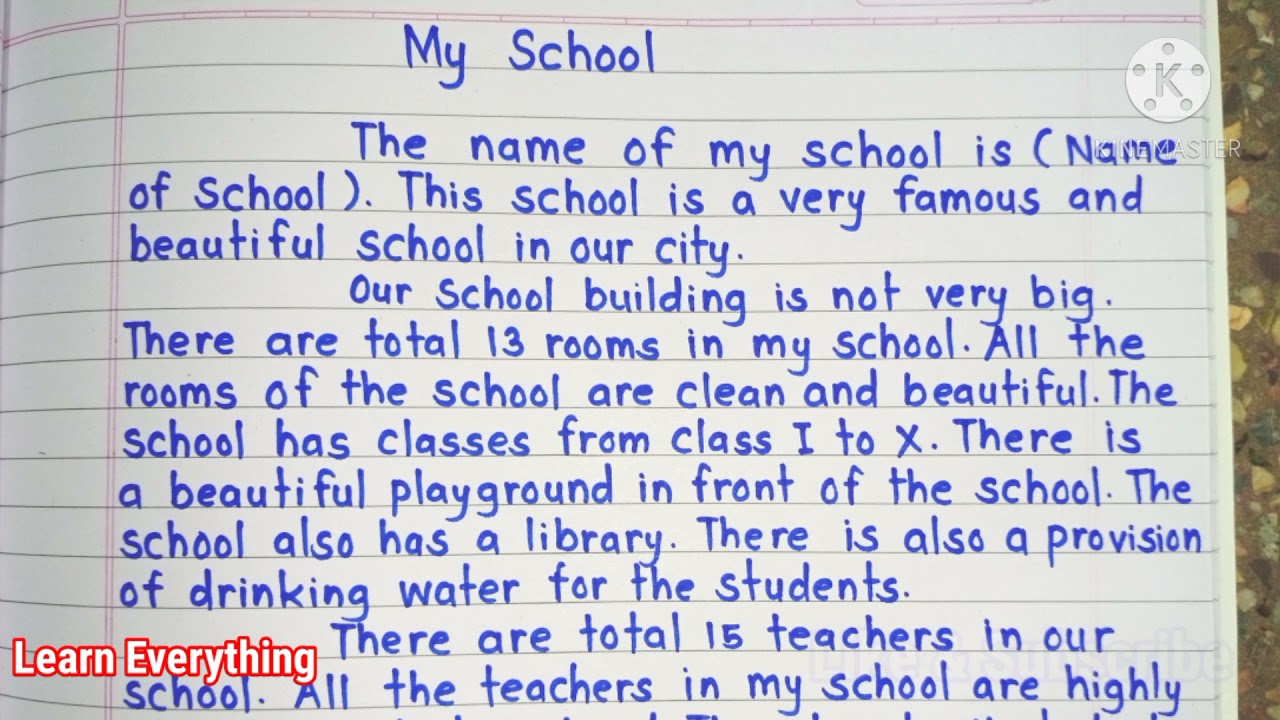 My School
The name of my school is (Name
of School). This school is a very famous and
beautiful school in our city.
Our School building is not very big.
There are total 13 rooms in my school. All the
rooms of the school are clean and beautiful. The
school has classes from class I to X. There is
a beautiful playground in front of the school. The
school also has a library. There is also a provision
of drinking water for the students.
There are total 15 teachers in our
school. All the teachers in my school are highly
K
KINEMASTER
Learn Everything
Like & Subscribe